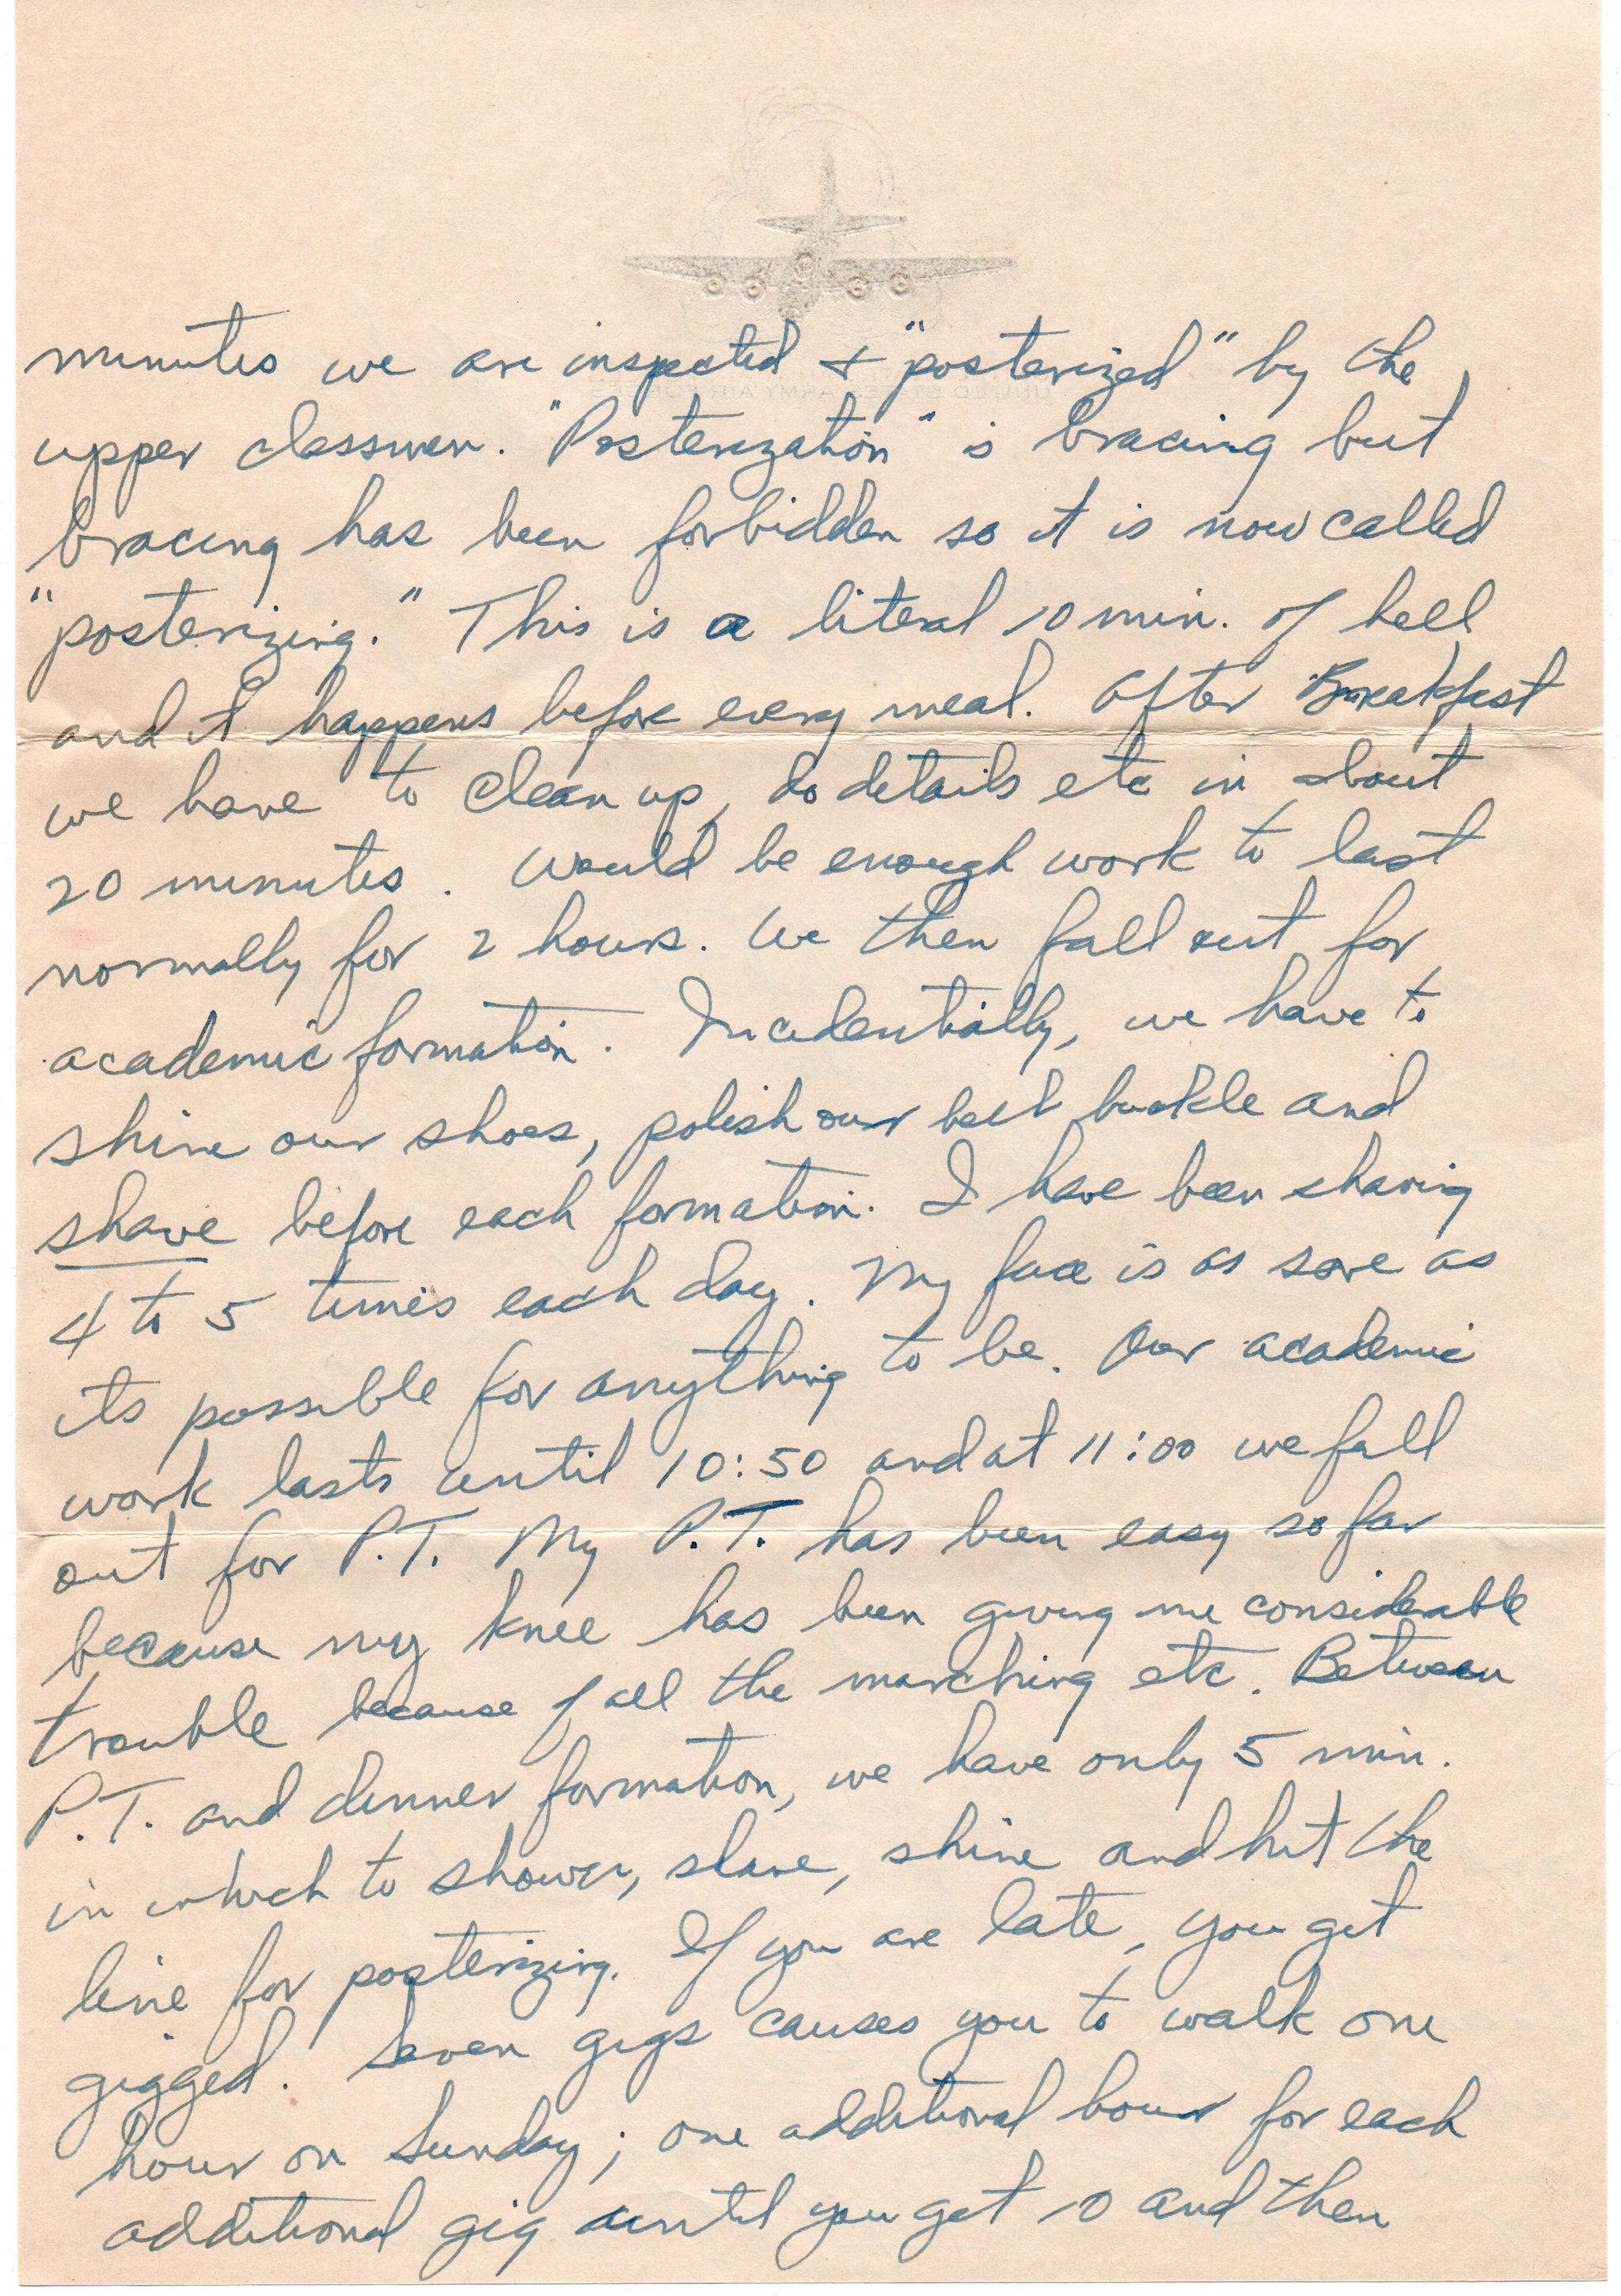 minutes we are inspected & "posterized" by the
upper classmen. "Posterization" is bracing but
bracing has been forbidden so it is now called
"posterizing." This is a literal 10 min. of hell
and it happens before every meal. After Breakfast
we have to clean up, do details etc in about
20 minutes. Would be enough work to last
normally for 2 hours. We then fall out for
academic formation. Incidentially, we have to
shine our shoes, polish our belt buckle and
shave before each formation. I have been shaving
4 to 5 times each day. My face is as sore as
its possible for anything to be. Our academic
work lasts until 10:50 and at 11:00 we fall
out for P.T. My P.T. has been easy so far
because my knee has been giving me considerable
trouble because of all the marching etc. Between
P.T. and dinner formation, we have only 5 min.
in which to shower, shave, shine and hit the
line for posterizing. If you are late, you get
gigged. Seven gigs causes you to walk one
hour on Sunday; one additional hour for each
additional gig until you get 10 and then